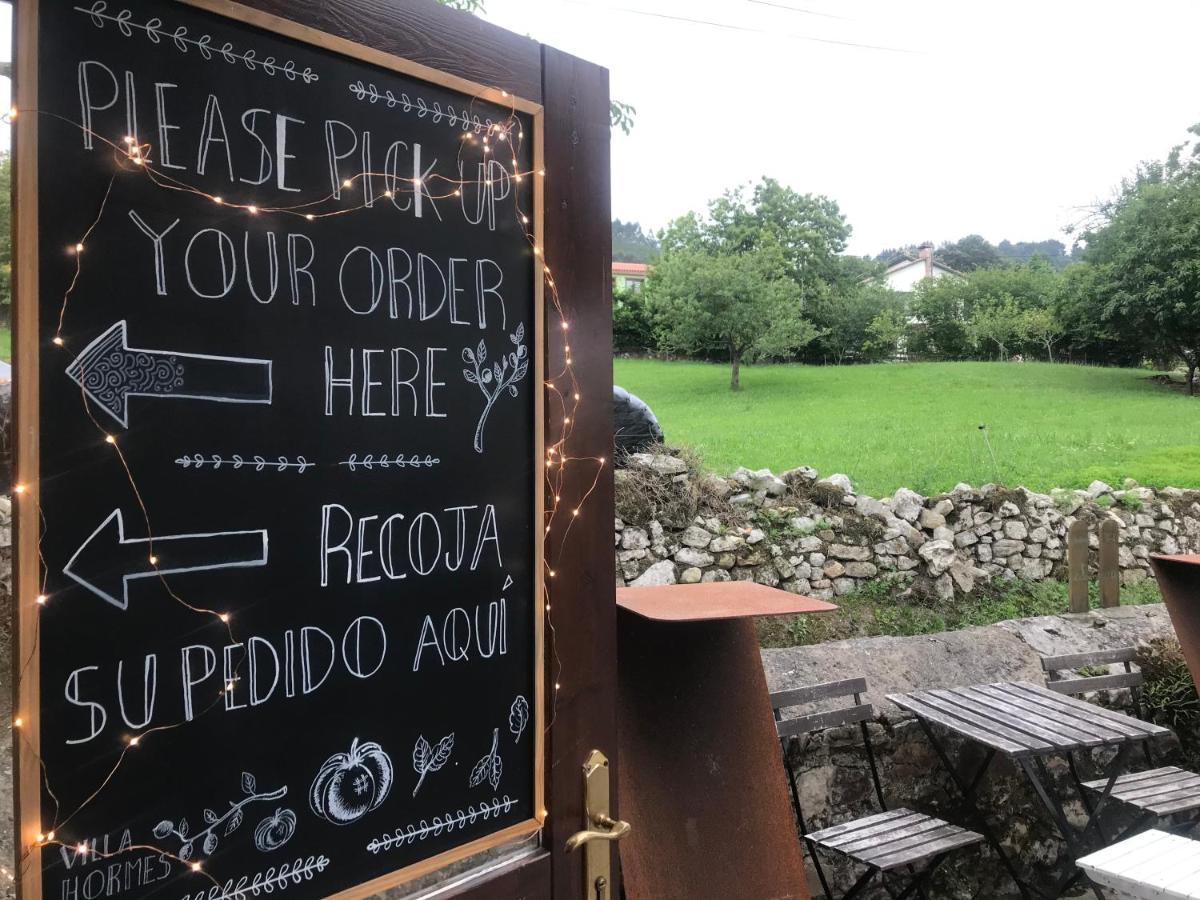 PLEASE PICK UP
YOUR ORDER
HERE
RECOJA
SU PEDIDO AQUÍ
VILLA
HORMES